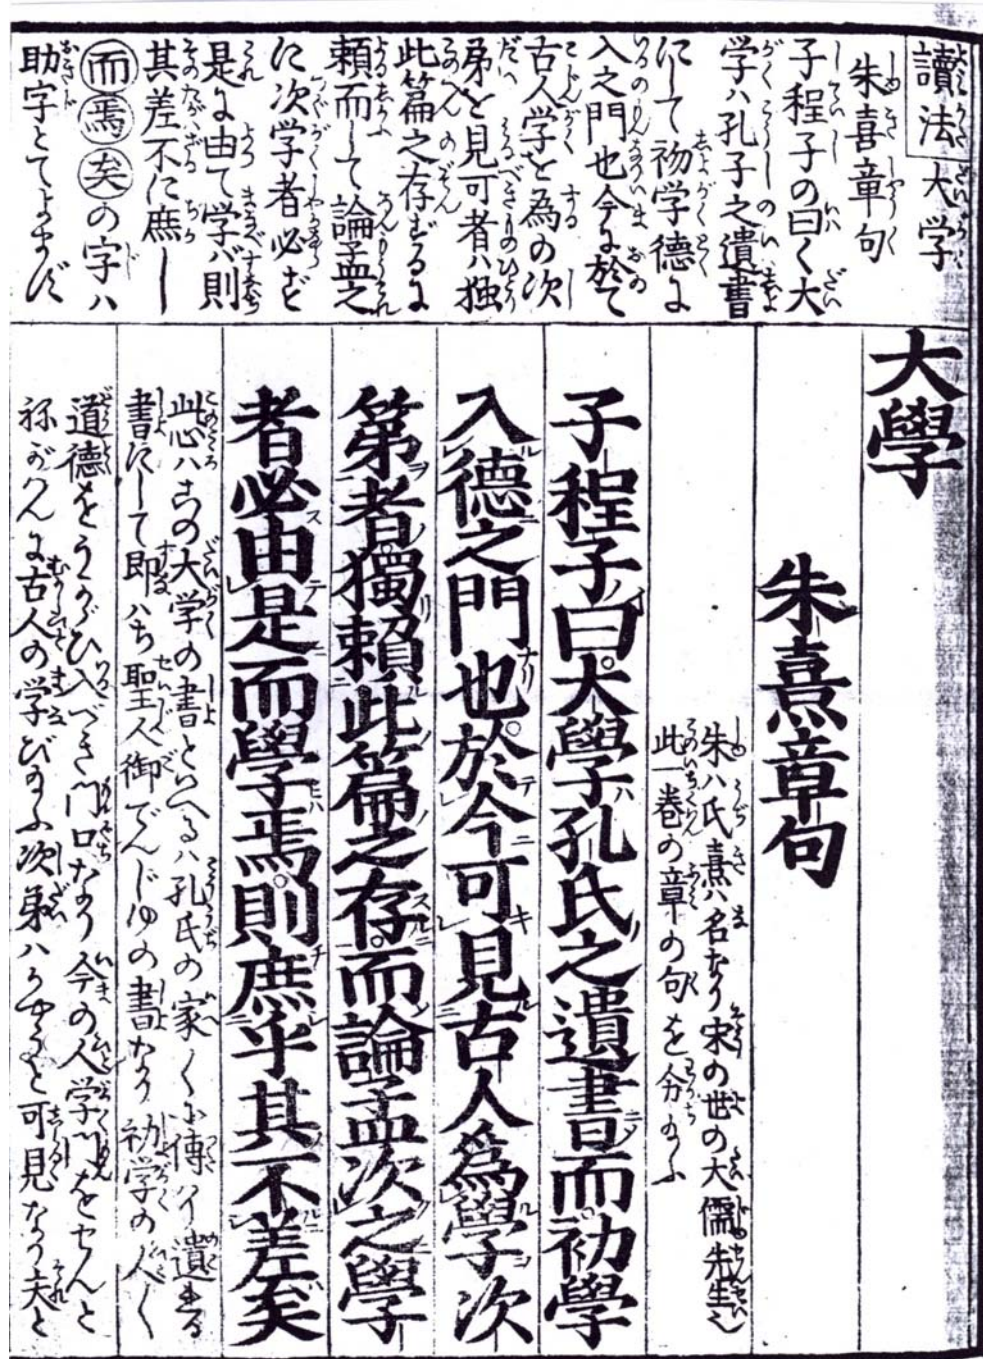 讀法大学
朱喜章句
子程子の曰く大
学ハ孔子之遺書
にして初学徳に
入之門也今に於て
古人学を為の次
弟を見可者ハ独
此篇之存ずるに
頼而して論孟之
に次学者必ず
是に由て学バ則
其差不に庶し
而焉矣の字ハ
助字とてよまず
大學
朱熹章句
朱ハ氏熹ハ名なり宋の世の大儒先生也
此一巻の章の句を分
子程子曰大學孔氏之遺書而初學
入德之門也於今可見古人爲學次
第者獨賴此篇之存而論孟次之學
者必由是而學焉則庶乎其不差矣
此心ハ此の大学の書といへるハ孔氏の家〱に傳ハり遺まる
書にして即ハち聖人御でんじゆの書なり初学の人〱
道徳をうかゞひ入べき門口なり今の人学問をせんと
ねがハんに古人の学び次第ハかやうと可見なり夫と